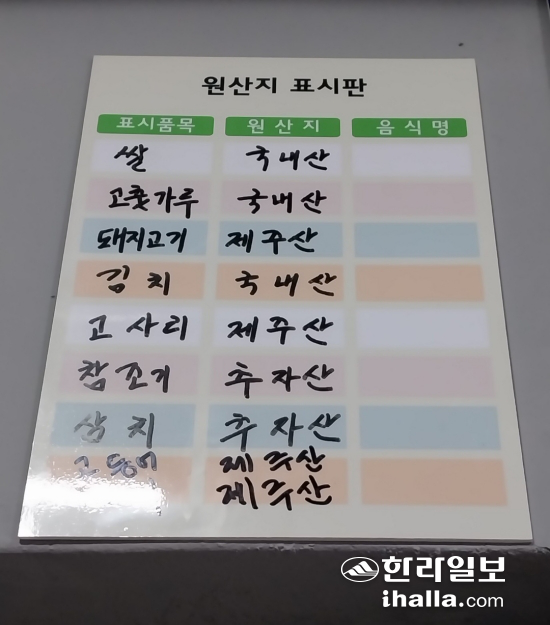 원산지 표시판
표시품목 원산지 음식명
쌀 국내산
고춧가루 국내산
돼지고기 제주산
김치 국내산
고사리 제주산
참조기 추자산
삼치 추자산
고등어 제주산
제주산
한라일보
ihalla.com